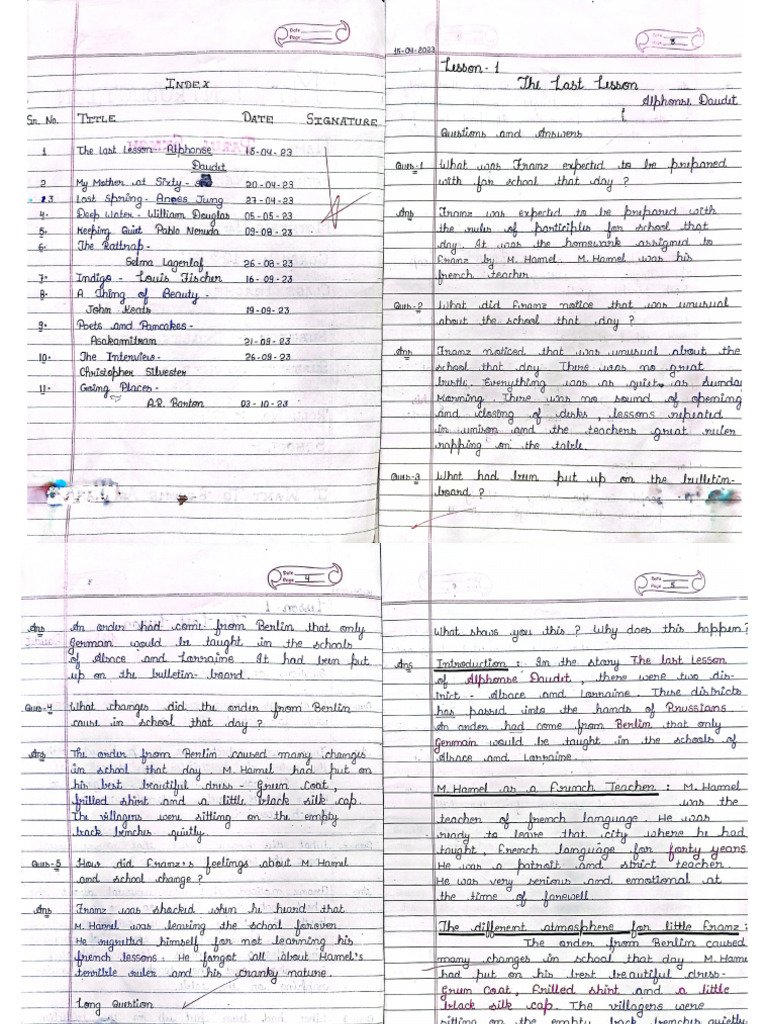 Date
Page
INDEX
Sr. No. TITLE DATE SIGNATURE
1 The Last Lesson- Alphonse 15-04-23
Daudet
2 My Mother at Sixty- 20-04-23
3 Lost Spring- Anees Jung 27-04-23
4. Deep Water- William Douglas 05-05-23
5. Keeping Quiet Pablo Neruda 09-08-23
6. The Rattrap-
Selma Lagerlaf 26-08-23
7. Indigo- Louis Fischer 16-09-23
8. A Thing of Beauty-
John Keats 19-09-23
9. Poets and Pancakes-
Asakamitram 21-09-23
10. The Interview- 26-09-23
Christopher Silvester
11. Going Places-
A.R. Barton 03-10-23
Date
Page 3
15-04-2023
Lesson-1
The Last Lesson
Alphonse Daudet
Questions and Answers
Ques-1 What was Franz expected to be prepared
with for school that day?
Ans Franz was expected to be prepared with
the rules of participles for school that
day. It was the homework assigned to
Franz by M. Hamel. M. Hamel was his
french teacher.
Ques-2 What did Franz notice that was unusual
about the school that day?
Ans Franz noticed that was unusual about the
school that day. There was no great
bustle. Everything was as quiet as Sunday
Morning. There was no sound of opening
and closing of desks, lessons repeated
in unison and the teachers great ruler
rapping on the table.
Ques-3 What had been put up on the bulletin-
board?
Date
Page 4
Ans An order had come from Berlin that only
German would be taught in the schools
of Alsace and Lorraine. It had been put
up on the bulletin-board.
Ques-4 What changes did the order from Berlin
cause in school that day?
Ans The order from Berlin caused many changes
in school that day. M. Hamel had put on
his best beautiful dress- Grum Coat,
frilled shirt and a little black silk cap.
The villagers were sitting on the empty
back benches quietly.
Ques-5 How did Franz's feelings about M. Hamel
and school change?
Ans Franz was shocked when he heard that
M. Hamel was leaving the school forever.
He regretted himself for not learning his
french lessons. He forgot all about Hamel's
terrible ruler and his cranky nature.
Long Question
Date
Page 5
What shows you this? Why does this happen?
Ans Introduction: In the story The last Lesson
of Alphonse Daudet, there were two dis-
trict- Alsace and Lorraine. These districts
has passed into the hands of Prussians
An order had come from Berlin, that only
German would be taught in the schools of
Alsace and Lorraine.
M. Hamel as a French Teacher: M. Hamel
was the
teacher of french language. He was
ready to leave that city where he had
taught, French language for forty years.
He was a patroit and strict teacher.
He was very serious and emotional at
the time of farewell.
The different atmosphere for little Franz:
The order from Berlin caused
many changes in school that day. M. Hamel
had put on his best beautiful dress-
Grum Coat, Frilled shirt and a little
black silk cap. The villagers were
sitting on the empty back benches quietly